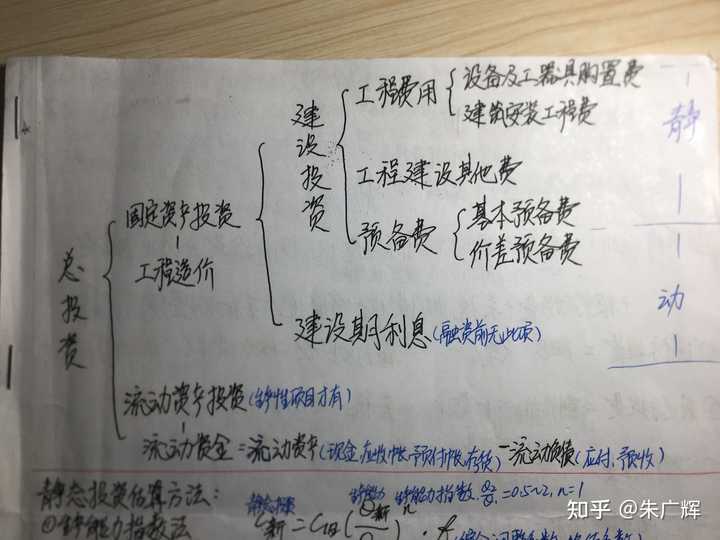 工程费用
设备及工器具购置费
建筑安装工程费
建设投资
静
工程建设其他费
固定资产投资
预备费
基本预备费
价差预备费
总投资
工程造价
动
建设期利息(融资前无此项)
流动资产投资(生产性项目才有)
流动资金=流动资产(现金,应收帐,预付帐,存货)-流动负债(应付、预收)
静态投资估算方法:
生产能力指数 =0.5~2,n=1
①生产能力指数法
C新=C旧(
知乎 @朱广辉